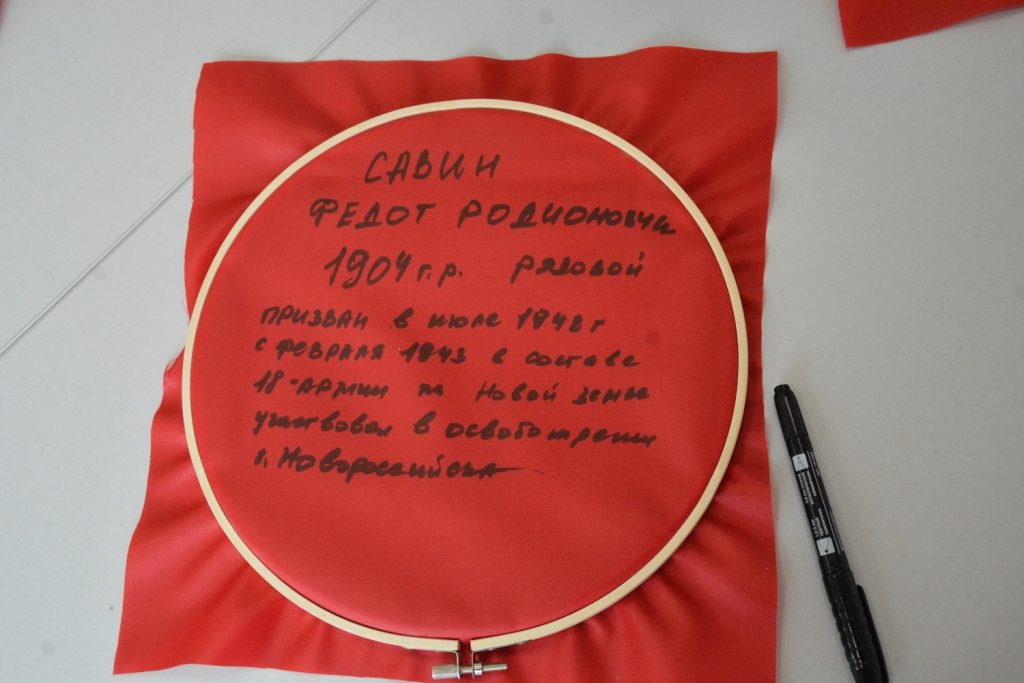 САВИН
ФЕДОТ РОДИОНОВИЧ
1904 г.р. рядовой
ПРИЗВАН в июле 1942 г
с ФЕВРАЛЯ 1943 в составе
18 АРМИИ на Новой земле
участвовал в освобождении
г. Новороссийска